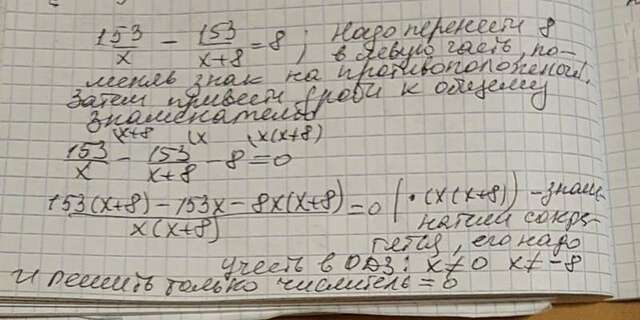 153/x - 153/x+8 = 8 ; Надо перенести 8
в левую часть, по-
меняв знак на противоположный.
Затем привести дроби к общему
знаменателю
\x+8 \x \x(x+8)
153/x - 153/x+8 - 8 = 0
153(x+8) - 153x - 8x(x+8) / x(x+8) = 0 | · (x(x+8)) - знаме-
натели сокра-
тятся, его надо
учесть в ОДЗ: x≠0 x≠-8
и решить только числитель = 0